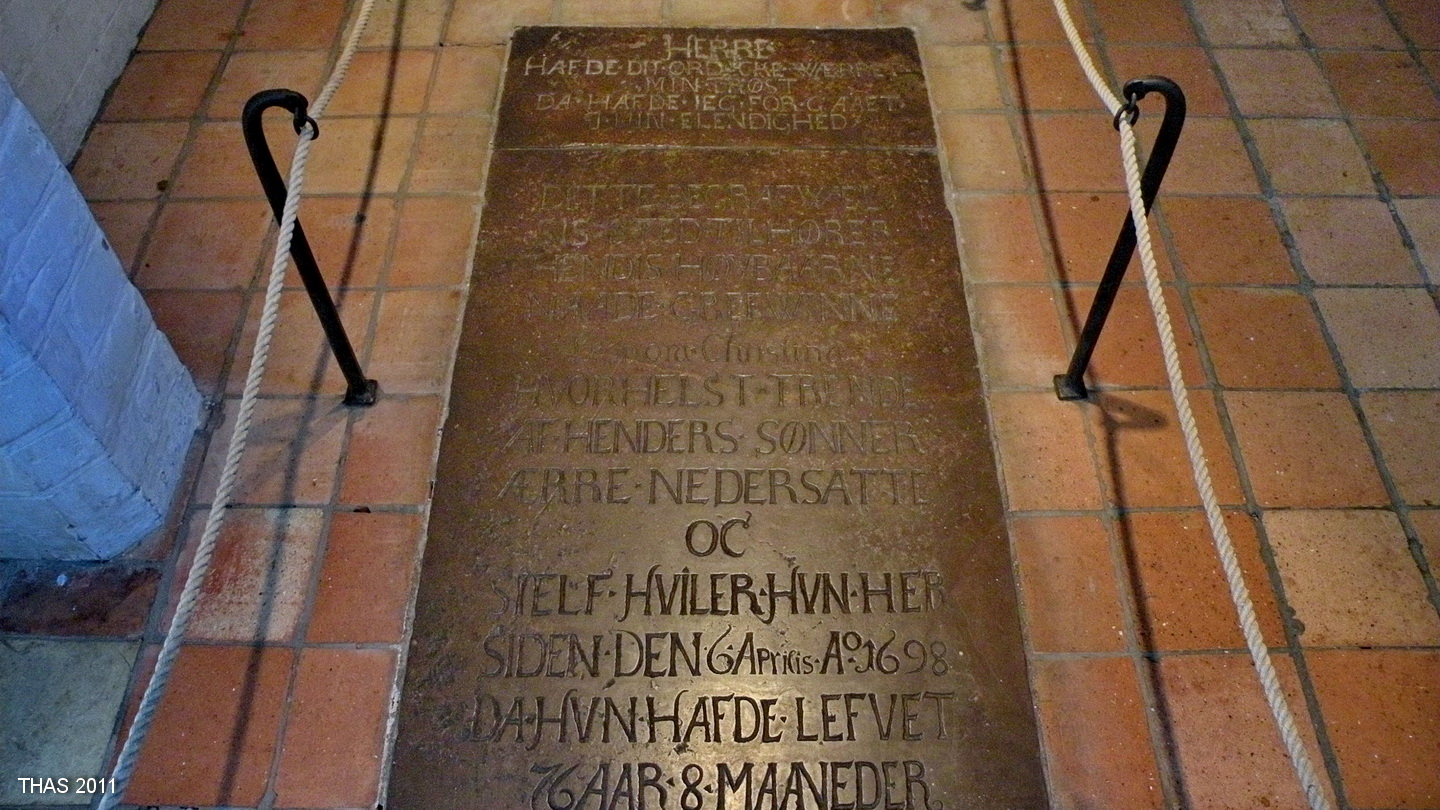 HERRE
HAFDE·DIT·ORD·ICKE·WÆRRET
MIN·TRØST
DA·HAFDE·IEG·FOR·GAAET·
I·MIN·ELENDIGHED
DETTE·BEGRAFWÆL
SIS·STED·TILHØRER
HENDIS·HØYBAARNE
NAADE·GREFWINNE
Leonora·Christina
HVORHELST·TRENDE
AF·HENDERS·SØNNER
ÆRRE·NEDERSATTE
OC
SIELF·HVILER·HVN·HER
SIDEN·DEN·6·Aprilis·Aº·1698
DA·HVN·HAFDE·LEFVET
76·AAR·8·MAANEDER
THAS 2011